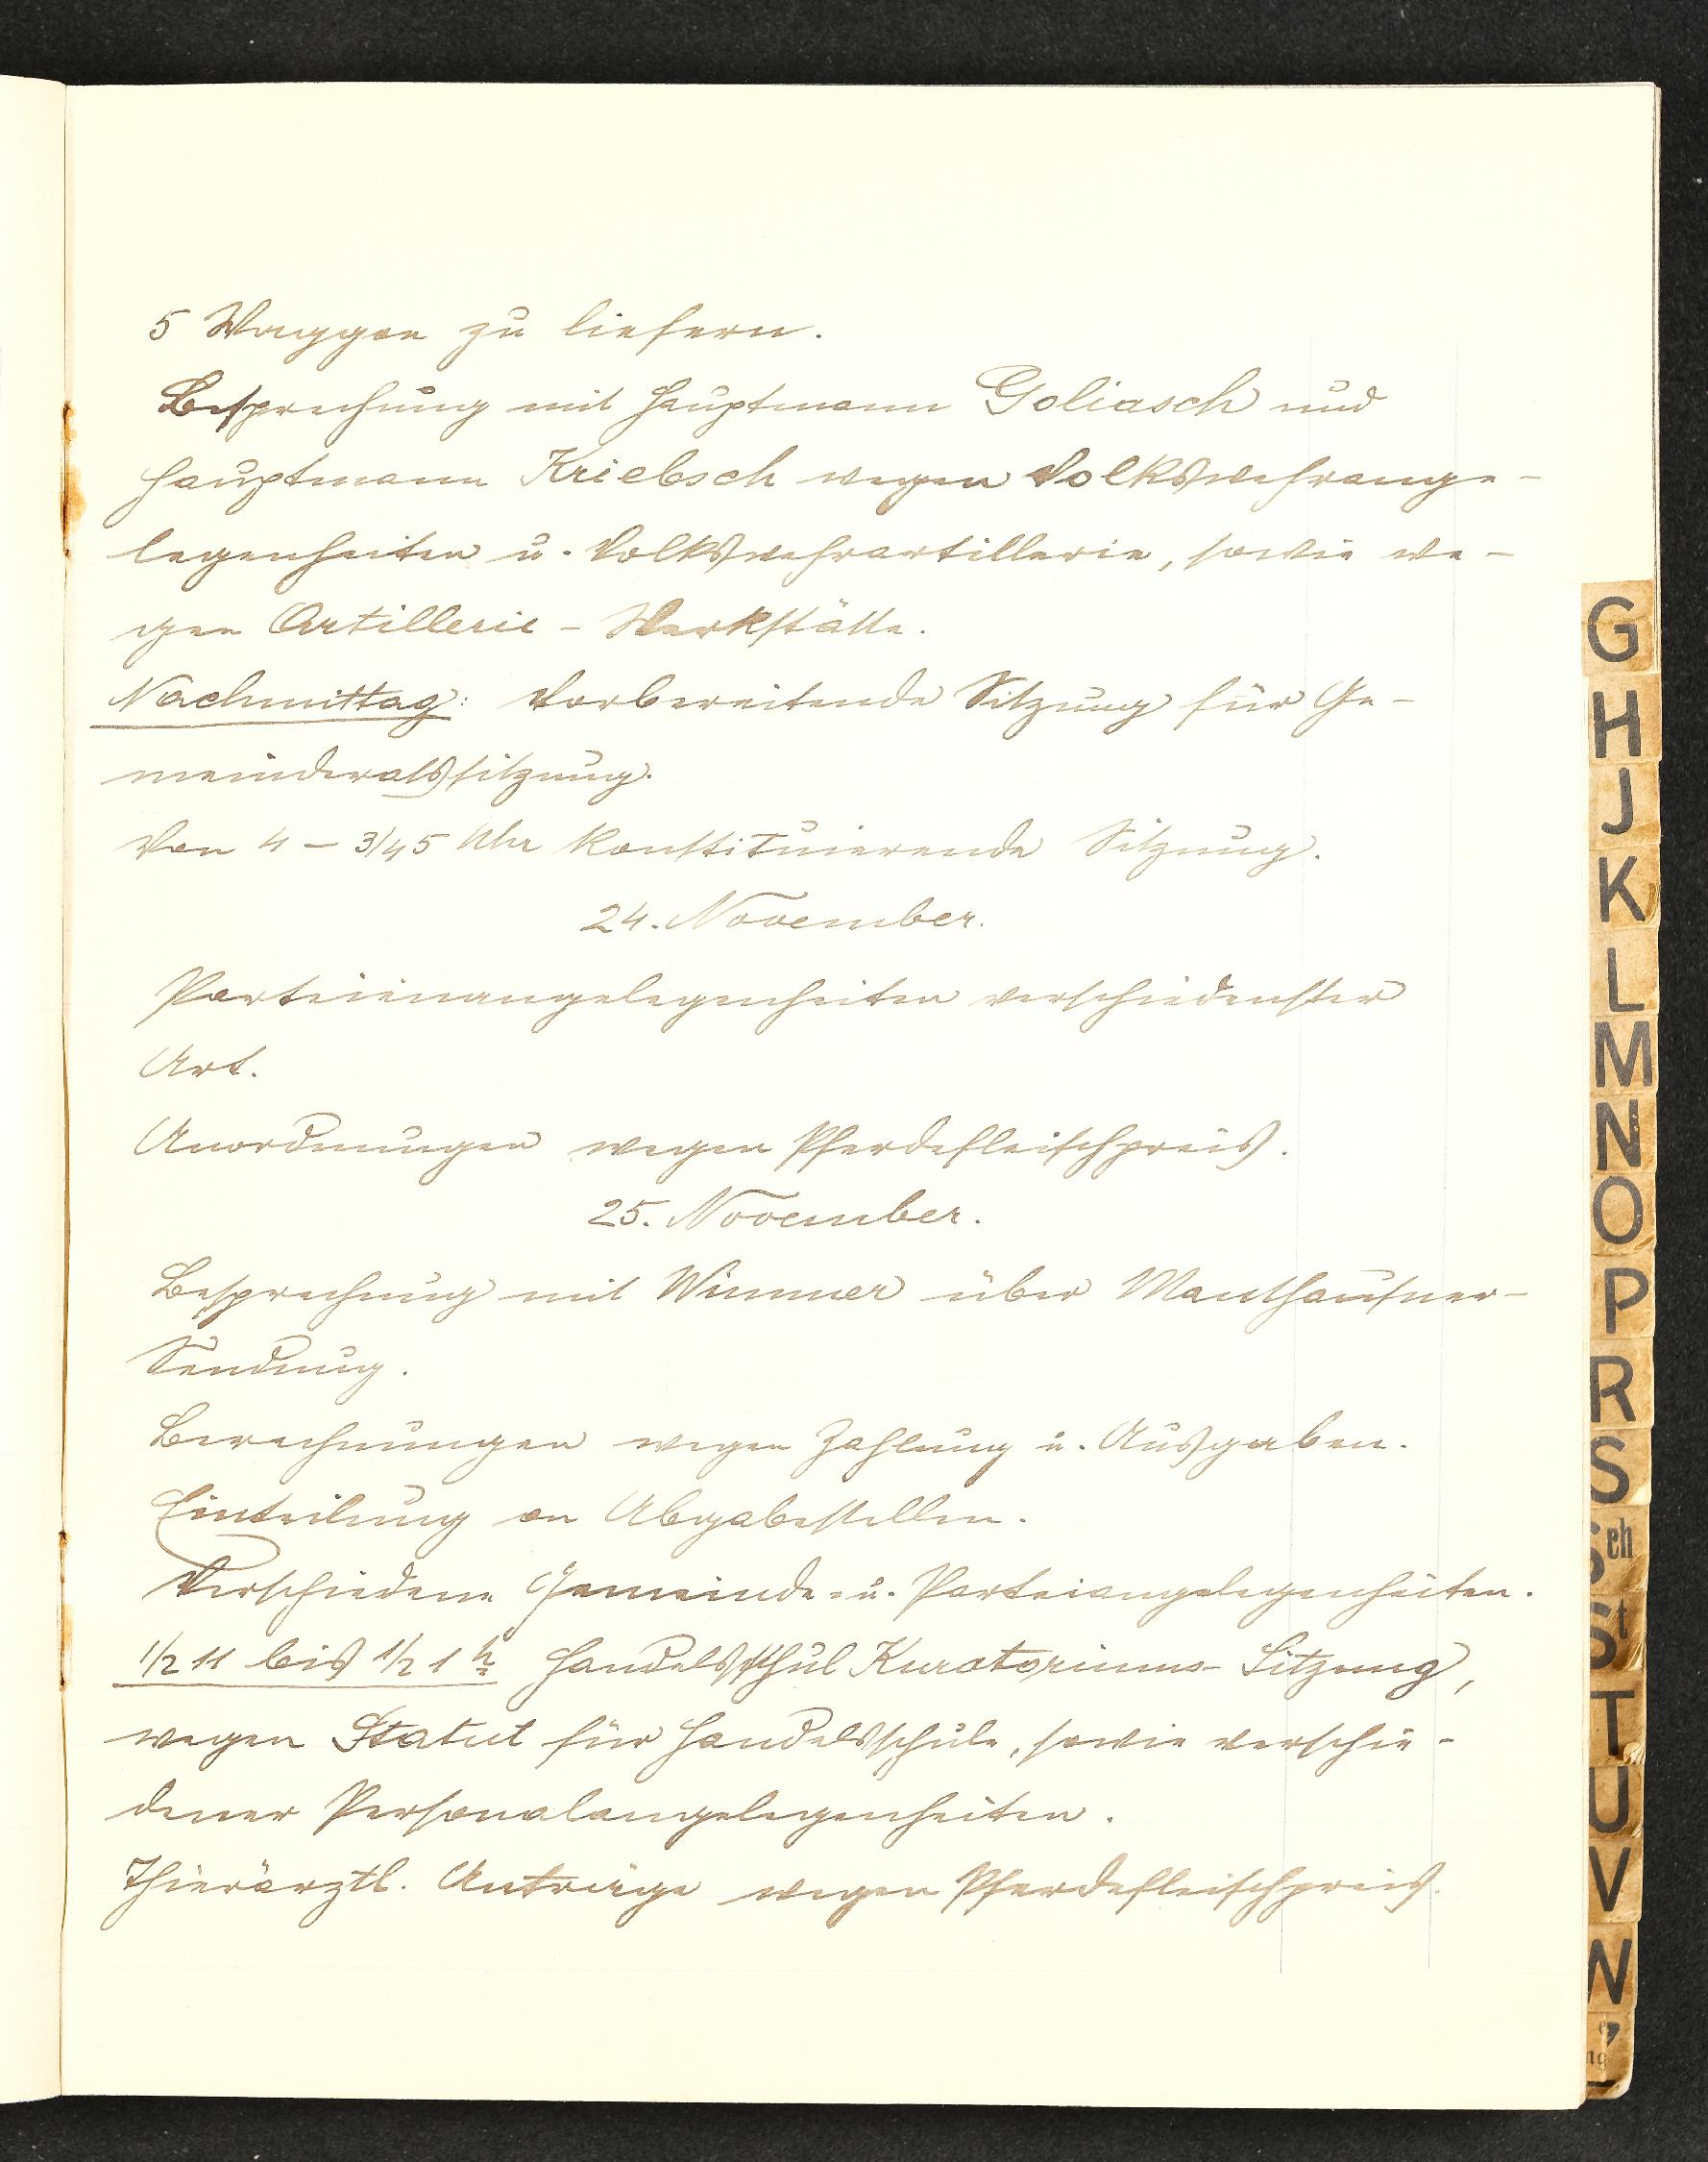 5 Waggon zu liefern.
Besprechung mit Hauptmann Goliasch und
Hauptmann Kriebsch wegen Volkswehrange-
legenheiten u. Volkswehrartillerie, sowie we-
gen Artillerie - Werkstätte.
Nachmittag: Vorbereitende Sitzung für Ge-
meinderatssitzung.
Von 4 - 3/4 5 Uhr Konstituierende Sitzung.
24. November.
Parteienangelegenheiten verschiedenster
Art.
Anordnungen wegen Pferdefleischpreis.
25. November.
Besprechung mit Wimmer über Mauthausner-
Sendung.
Berechnungen wegen Zahlung u. Ausgaben.
Einteilung an Abgabestellen.
Verschiedene Gemeinde- u. Parteiangelegenheiten.
1/2 11 bis 1/2 1 h Handelsschul Kuratoriums- Sitzung,
wegen Statut für Handelsschule, sowie verschie-
dener Personalangelegenheiten.
Thierärztl. Anträge wegen Pferdefleischpreis.
G
H
J
K
L
M
N
O
P
R
S
Sch
St
T
U
V
W